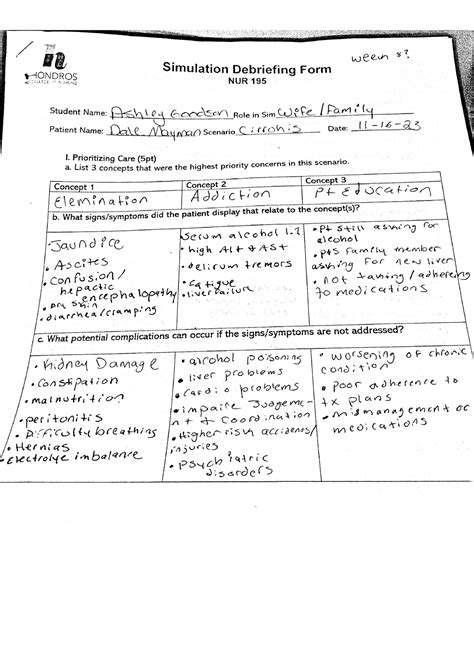 week 8?
HONDROS
COLLEGE OF NURSING
Simulation Debriefing Form
NUR 195
Student Name: Ashley Goodson Role in Sim Wife/Family
Patient Name: Dale Mayman Scenario Cirrohis Date: 11-16-23
I. Prioritizing Care (5pt)
a. List 3 concepts that were the highest priority concerns in this scenario.
Concept 1
Elemination
Concept 2
Addiction
Concept 3
Pt Education
b. What signs/symptoms did the patient display that relate to the concept(s)?
Jaundice
• Ascites
• confusion/
hepactic
encephalopathy
• Dry skin
• diarrhea/cramping
Serum alcohol 1.2
• high Alt & AST
• delirum tremors
• fatigue
• liver failure
• Pt still asking for
alcohol
• pts family member
asking for new liver
• not taking/adhering
to medications
c. What potential complications can occur if the signs/symptoms are not addressed?
• Kidney Damage
• Constipation
• malnutrition
• peritonitis
• Difficulty breathing
• Hernias
• Electrolye imbalance
• alcohol poisoning
• liver problems
• cardio problems
• impaire Judgeme-
nt & Coordination
• Higher risk accidents/
injuries
• Psychiatric
disorders
• worsening of chronic
condition
• poor adherence to
tx plans
• mismanagement of
medications